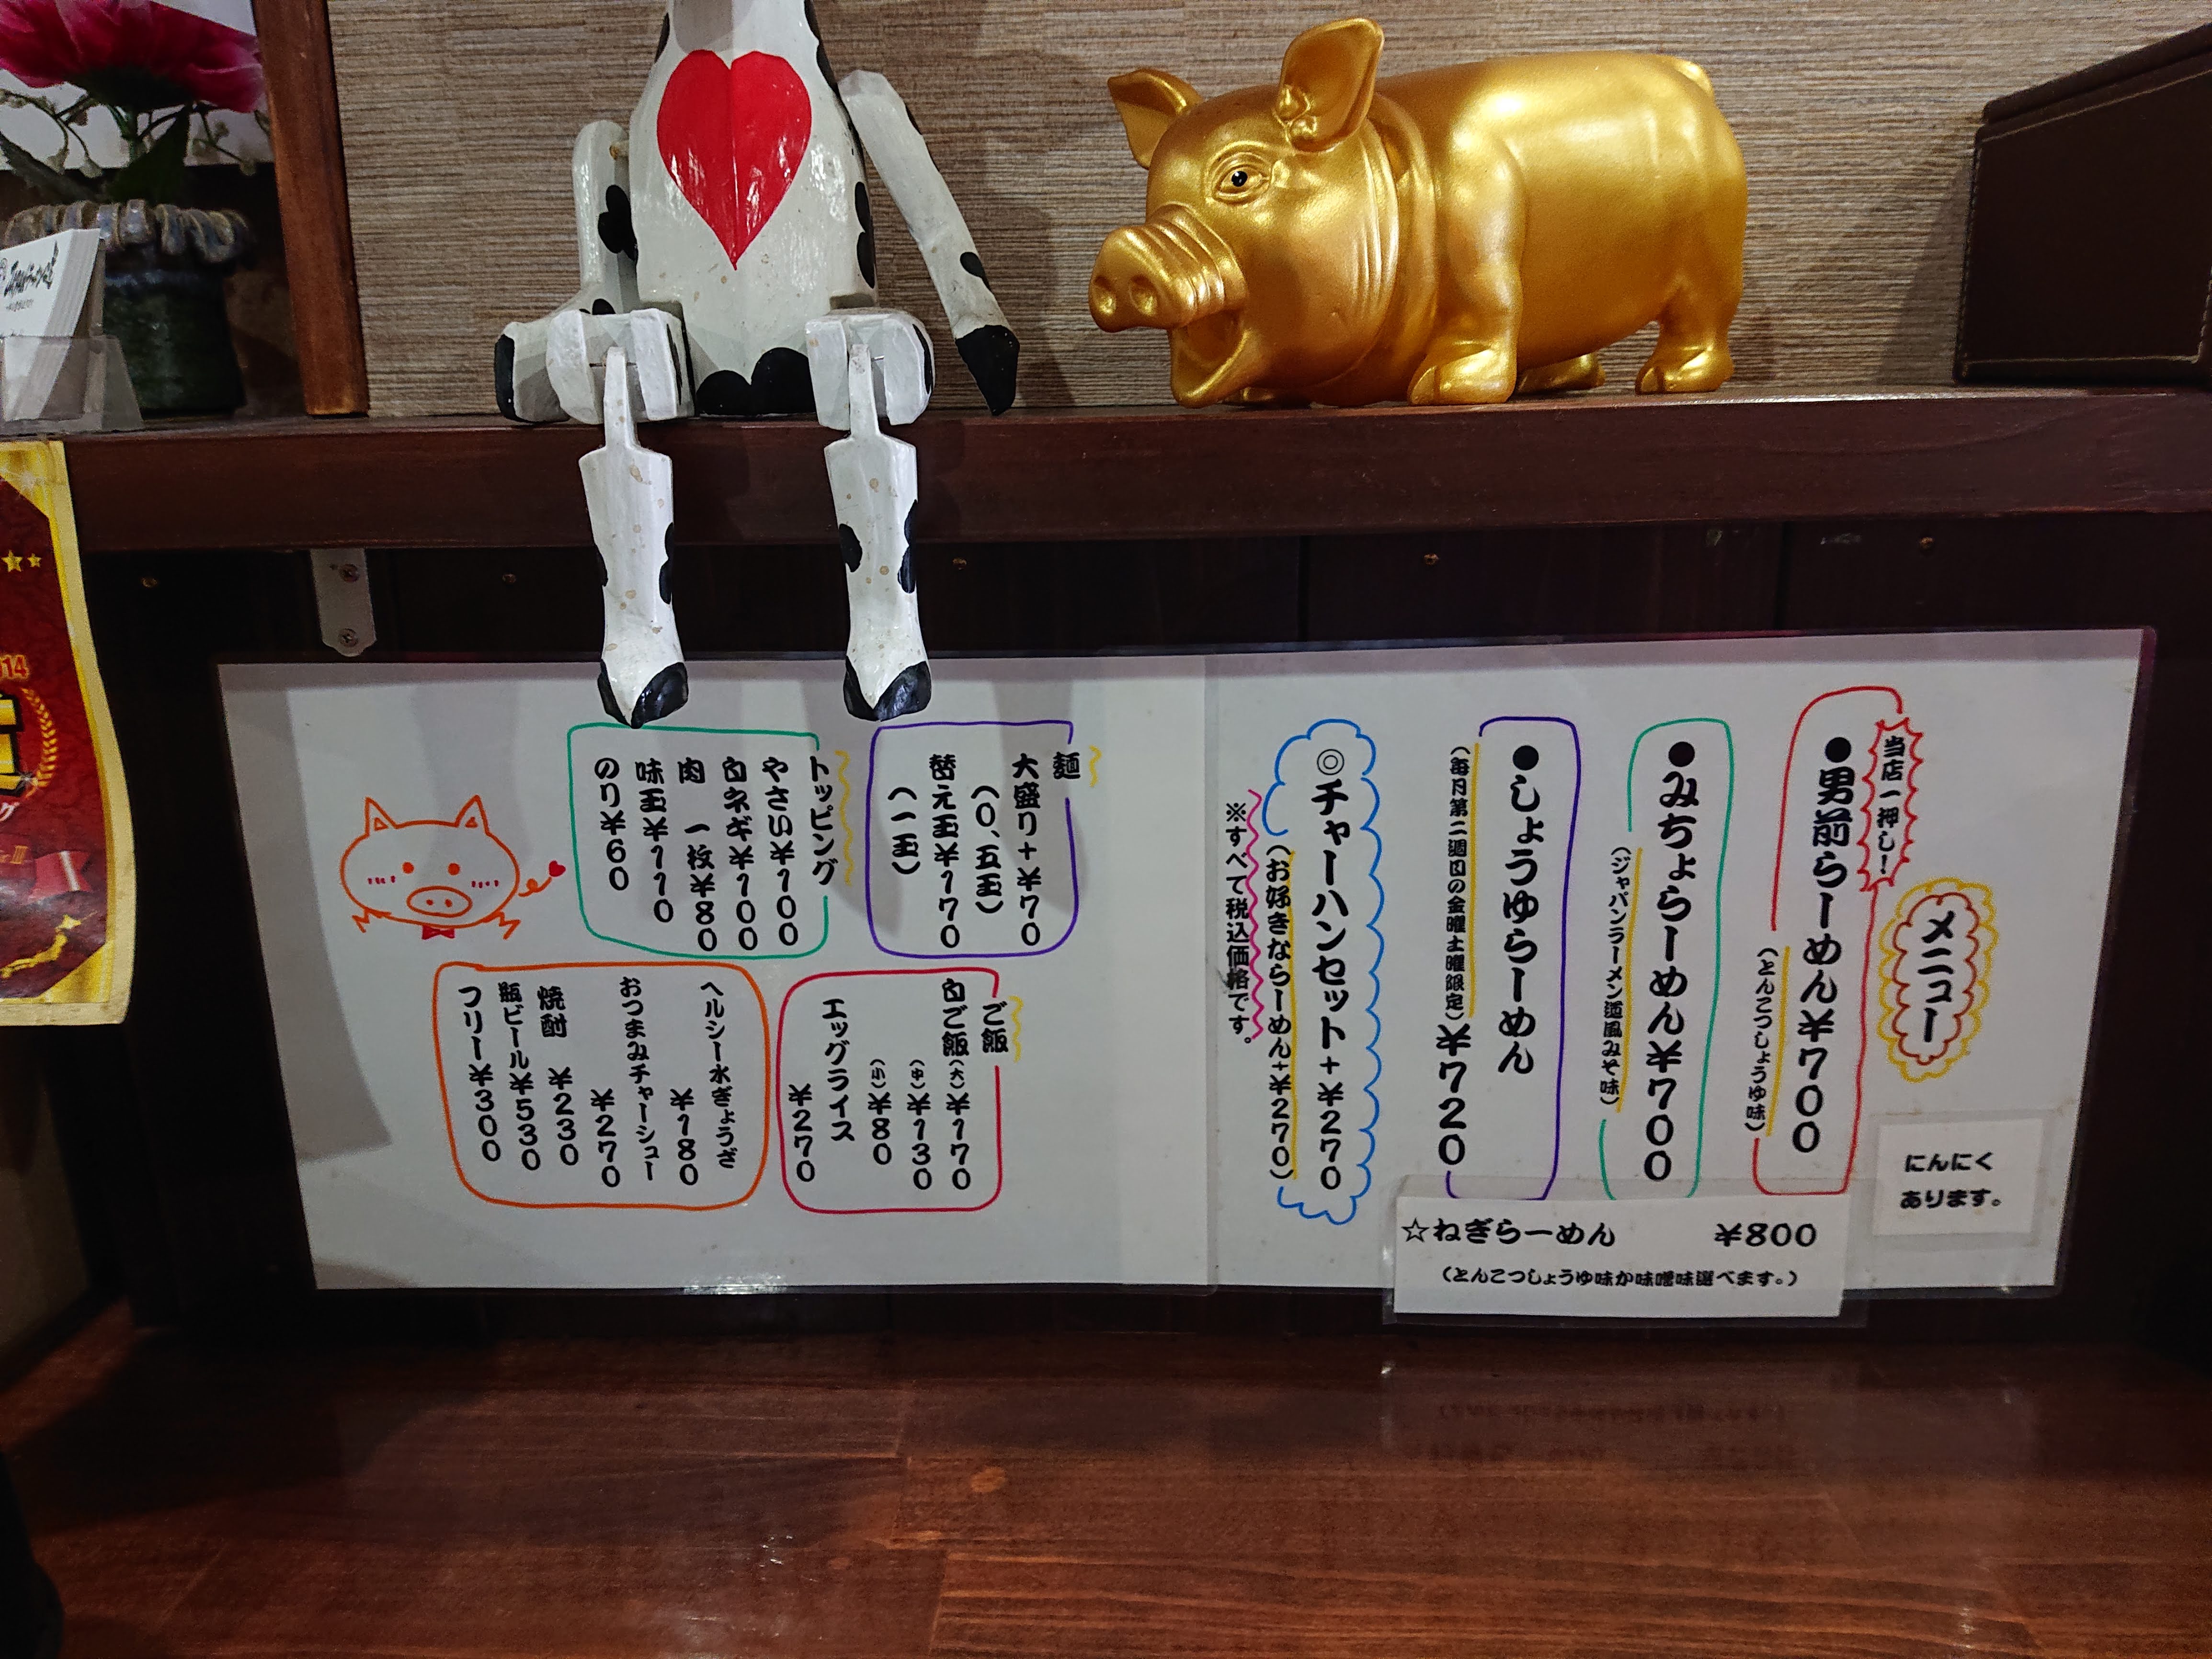 メニュー
当店一押し！
●男前らーめん¥700
（とんこつしょうゆ味）
●みちょらーめん¥700
（ジャパンラーメン道風みそ味）
●しょうゆらーめん
（毎月第二週目の金曜土曜限定）¥720
◎チャーハンセット+¥270
（お好きならーめん+¥270）
※すべて税込価格です。
にんにく
あります。
☆ねぎらーめん ¥800
（とんこつしょうゆ味か味噌味選べます。）
麺
大盛り+¥70
（0、五玉）
替え玉¥170
（一玉）
トッピング
やさい¥100
白ネギ¥100
肉 一枚¥80
味玉¥110
のり¥60
ご飯
白ご飯（大）¥170
（中）¥130
（小）¥80
エッグライス
¥270
ヘルシー水ぎょうざ
¥180
おつまみチャーシュー
¥270
焼酎 ¥230
瓶ビール¥530
フリー¥300